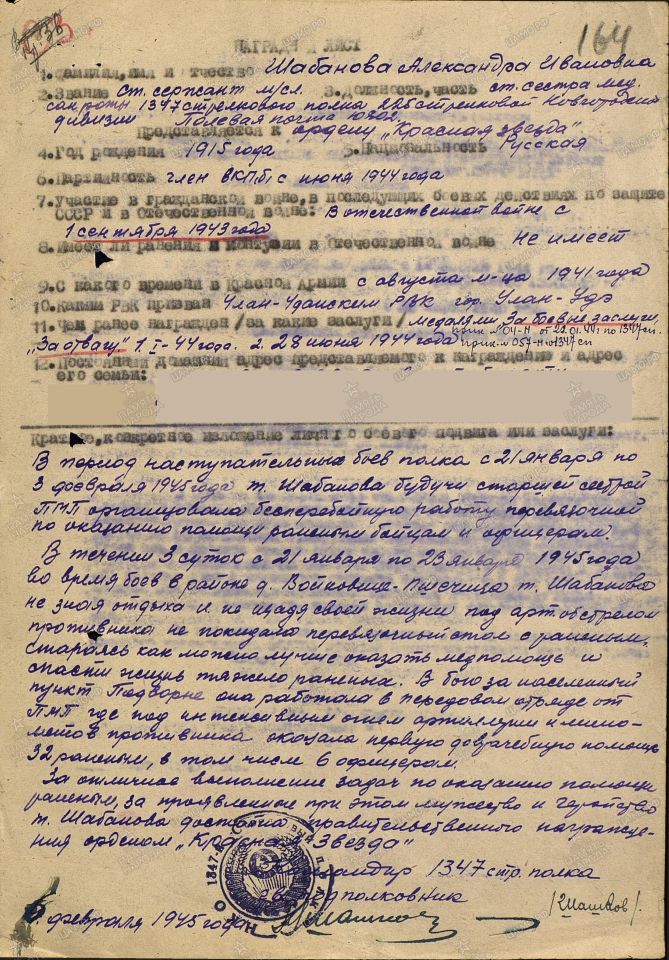 164
НАГРАДНОЙ ЛИСТ
1. Фамилия, имя и отчество Шабанова Александра Ивановна
2. Звание ст. сержант м/сл. 3. Должность, часть ст. сестра мед.
сан. роты 1347 стрелкового полка 225 стрелковой Новгородской
дивизии Полевая почта
Представляется к ордену "Красная звезда"
4. Год рождения 1915 года 5. Национальность Русская
6. Партийность член ВКПб/ с июня 1944 года
7. Участие в гражданской войне, в последующих боевых действиях по защите
СССР и в Отечественной войне: В отечественной войне с
1 сентября 1943 года
8. Имеет ли ранения и контузии в Отечественной войне Не имеет
9. С какого времени в Красной Армии с августа м-ца 1941 года
10. Каким РВК призван Улан-Удэнским РВК гор. Улан-Удэ
11. Чем ранее награжден /за какие заслуги/ медалями За боевые заслуги,
прик. № 04-Н от 22.01.44г по 1347 сп.
"За отвагу" 1. I-44 года. 2. 28 июня 1944 года прик. № 057-Н 1347 сп
12. Постоянный домашний адрес представляемого к награждению и адрес
его семьи:
Краткое, конкретное изложение личного боевого подвига или заслуги:
В период наступательных боев полка с 21 января по
3 февраля 1945 года т. Шабанова будучи старшей сестрой
ПМП организовала бесперебойную работу перевязочной
по оказанию помощи раненым бойцам и офицерам.
В течении 3 суток с 21 января по 23 января 1945 года
во время боев в районе д. Войковице-Пшечица т. Шабанова
не зная отдыха и не щадя своей жизни под артобстрелом
противника не покидала перевязочный стол с раненым,
стараясь как можно лучше оказать медпомощь и
спасти жизнь тяжело раненых. В бою за населенный
пункт Подборне она работала в передовом отряде от
ПМП где под интенсивным огнем артиллерии и мино-
метов противника оказала первую доврачебную помощь
32 раненым, в том числе 6 офицерам.
За отличное выполнение задач по оказанию помощи
раненым, за проявленное при этом мужество и геройство
т. Шабанова достойна правительственного награжде-
ния орденом "Красная Звезда"
Командир 1347 стр. полка
подполковник
/Машков/
февраля 1945 года